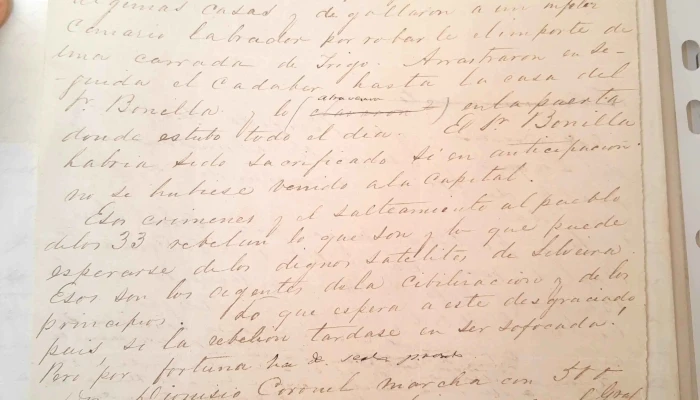 algunas casas y degollaron a un infeliz
Comario labrador por robarle el importe de
una carrada de trigo. Arrastraron en se-
-guida el Cadaber hasta la casa del
Sr. Bonilla y lo ( atravesaron ) en la puerta
donde estubo todo el dia. El Sr. Bonilla
habria sido sacrificado si en anticipacion
no se hubiese venido ala Capital.
Esos crimenes y el salteamiento al pueblo
delos 33 rebelan lo que son y lo que puede
esperarse delos dignos satelites de Silveira.
Esos son los agentes dela cibilizacion y delos
principios. Lo que espera a este desgraciado
pais si la rebelion tardase en ser sofocada!
Pero por fortuna ha de ser pronto
Dionisio Coronel marcha con 500